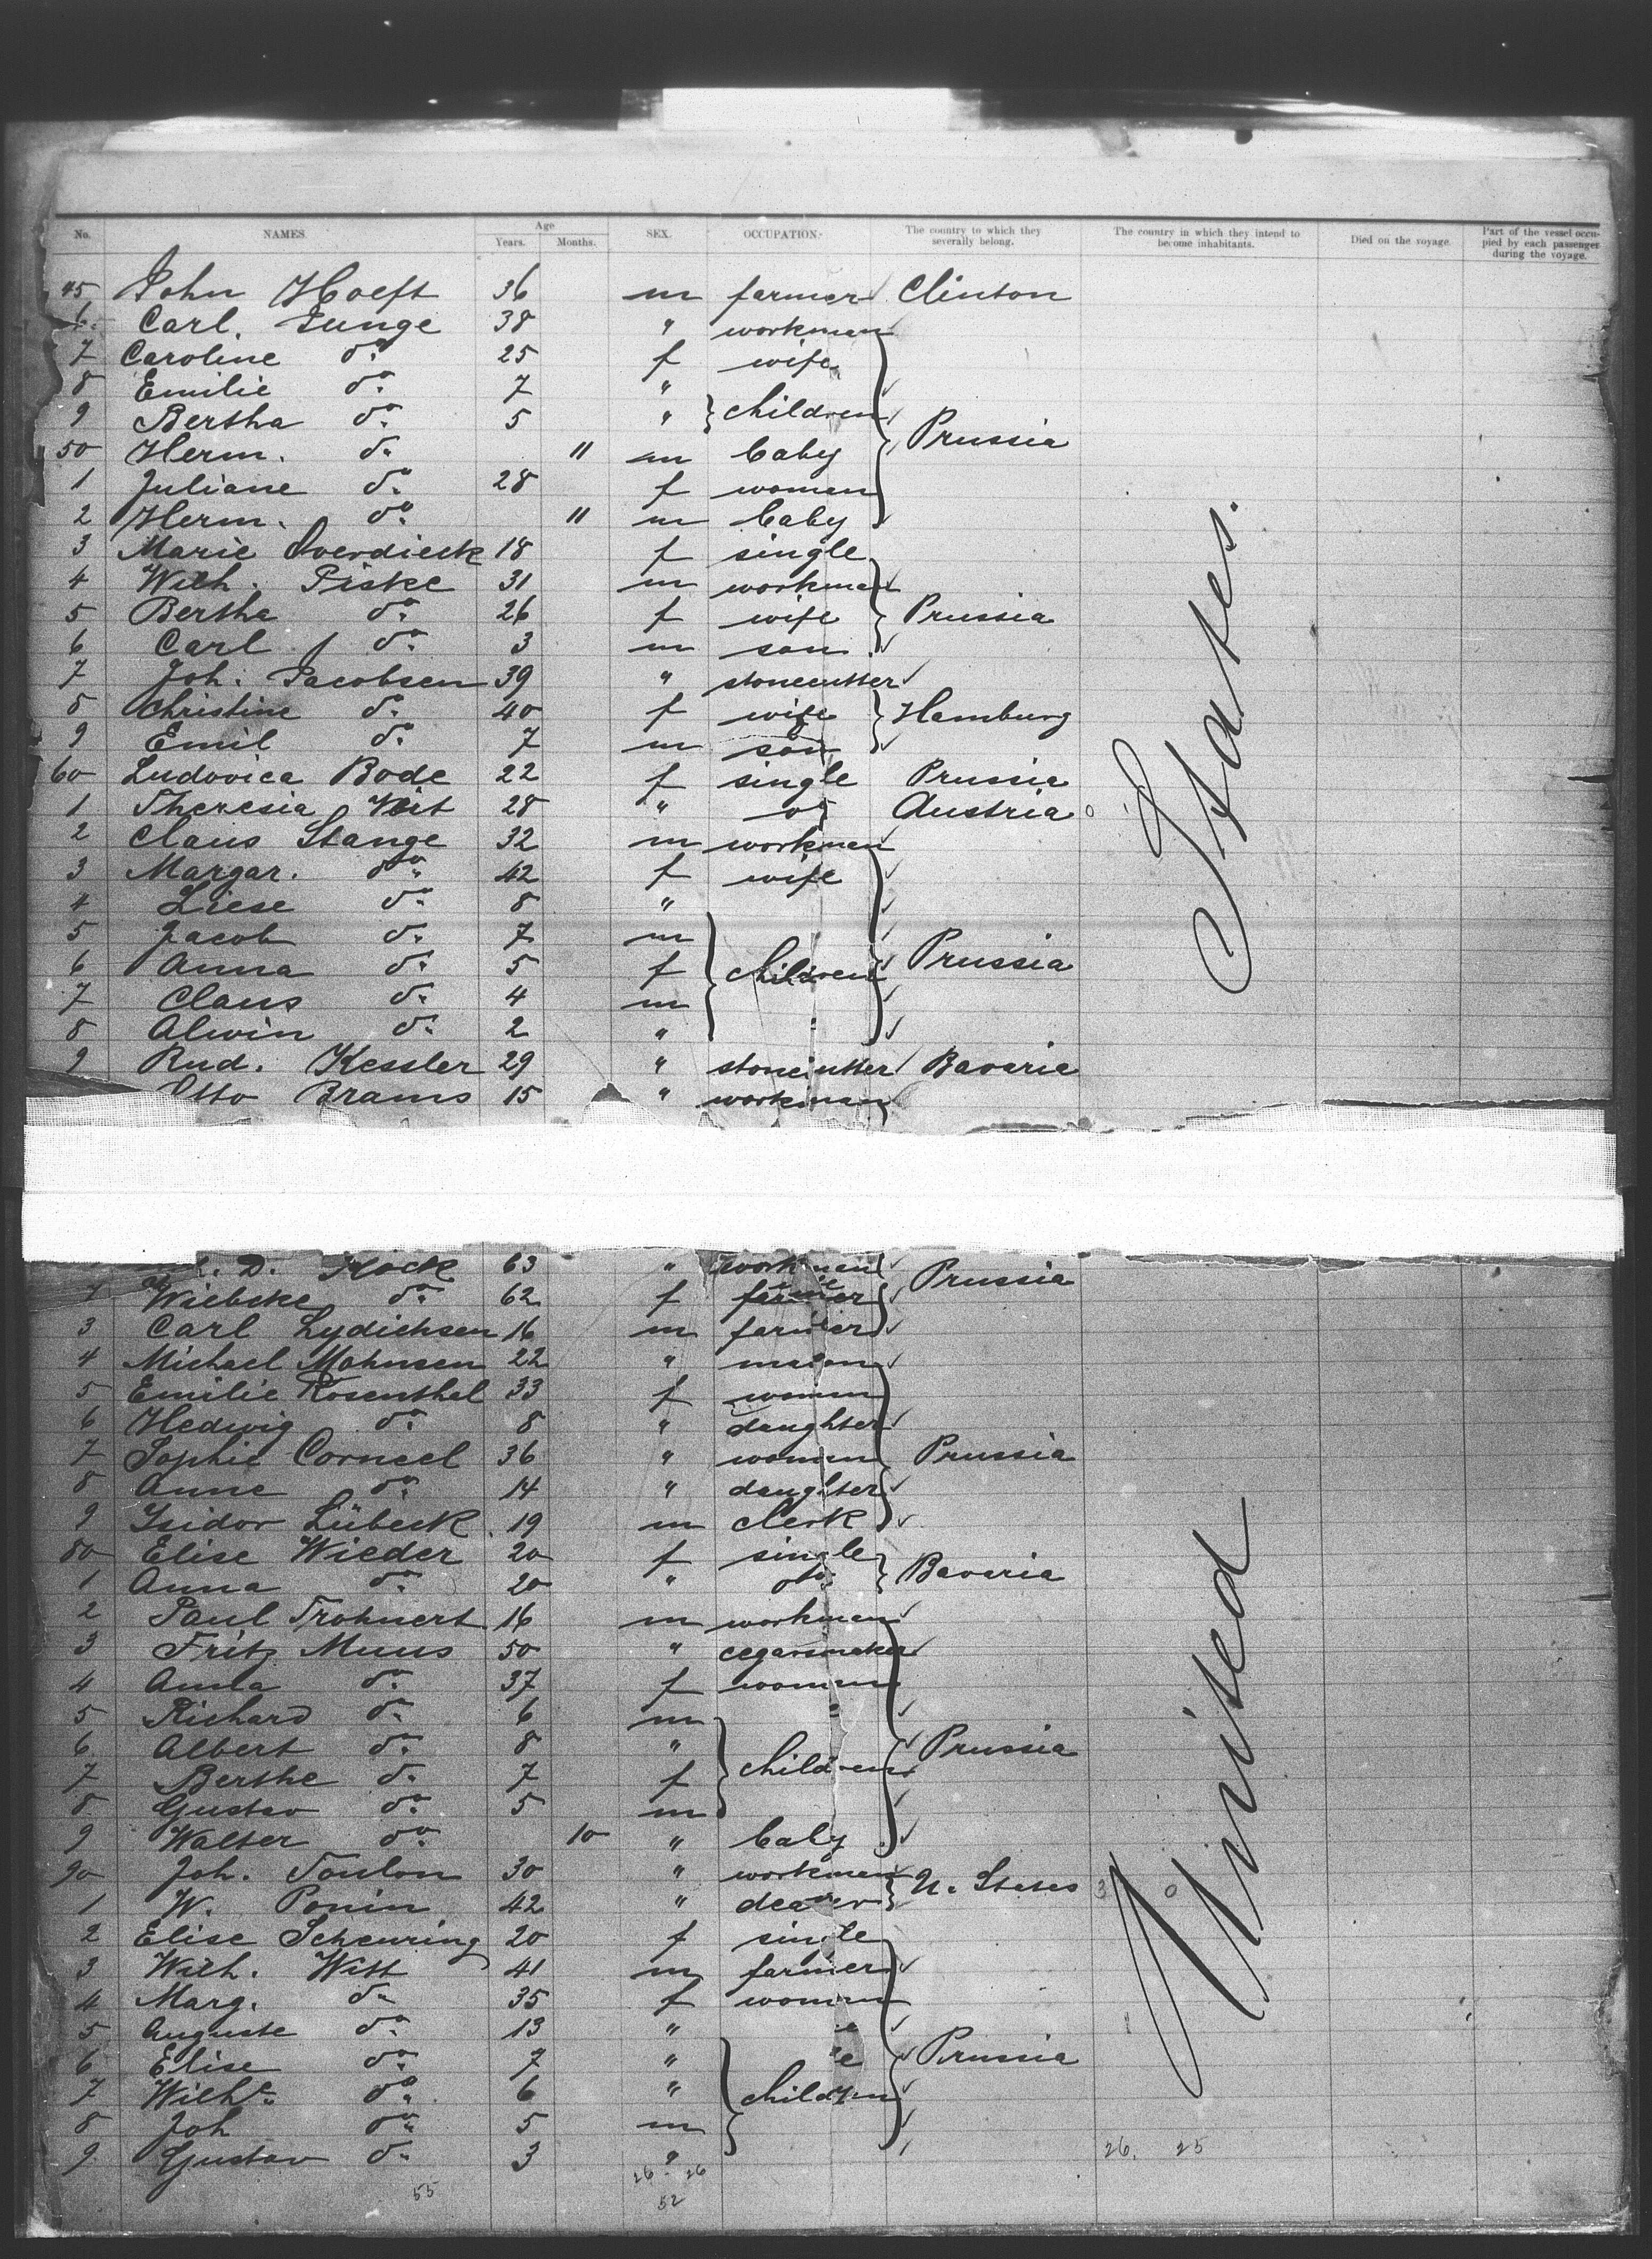 No. NAMES. Age Years. Months. SEX. OCCUPATION. The country to which they severally belong. The country in which they intend to become inhabitants. Died on the voyage. Part of the vessel occupied by each passenger during the voyage.
45 John Hoeft 36 m farmer Clinton
6 Carl. Junge 38 " workman
7 Caroline do. 25 f wife
8 Emilie do. 7 "
9 Bertha do. 5 " children Prussia
50 Herm. do. 11 m baby
1 Juliane do. 28 f woman
2 Herm. do. 11 m baby
3 Marie Overdieck 18 f single
4 Wilh. Piske 31 m workman
5 Bertha do. 26 f wife Prussia
6 Carl do. 3 m son
7 Joh. Jacobsen 39 " stonecutter
8 Christine do. 40 f wife Hamburg
9 Emil do. 7 m son
60 Ludovica Bode 22 f single Prussia
1 Theresia Veit 28 " do Austria
2 Claus Stange 32 m workman
3 Margar. do. 42 f wife
4 Liese do. 8 "
5 Jacob do. 7 m
6 Anna do. 5 f children Prussia
7 Claus do. 4 m
8 Alwin do. 2 "
9 Rud. Kessler 29 " stonecutter Bavaria
Otto Brams 15 " workman
States.
D. Kock 63 " workman Prussia
Wiebcke do. 62 f
3 Carl Lydichsen 16 m farmer
4 Michael Mohnsen 22 " mason
5 Emilie Rosenthal 33 f woman
6 Hedwig do. 8 " daughter
7 Sophie Corneel 36 " woman Prussia
8 Anne do. 14 " daughter
9 Isidor Lübeck 19 m clerk
80 Elise Wieder 20 f single Bavaria
1 Anna do. 20 " do.
2 Paul Trohnert 16 m workman
3 Fritz Muus 50 " cegarsmaker
4 Anna do. 37 f woman
5 Richard do. 6 m
6 Albert do. 8 " Prussia
7 Berthe do. 7 f children
8 Gustav do. 5 m
9 Walter do. 10 " baby
90 Joh. Toulon 30 " workman U. States
1 W. Ponin 42 " dealer
2 Elise Scheuring 20 f single
3 Wilh. Witt 41 m farmer
4 Marg. do. 35 f woman
5 Auguste do. 13 "
6 Elise do. 7 " Prussia
7 Wilhe. do. 6 " children
8 Joh do. 5 m
9 Gustav do. 3 "
United
26. 25
26. 26
55
52